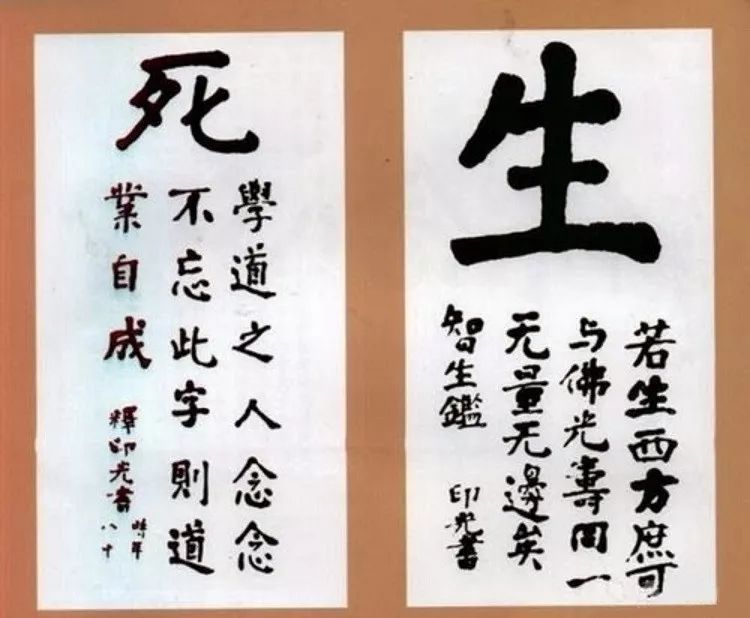 生
若生西方庶可
与佛光壽同一
无量无邊矣
智生鑑
印光書
死
學道之人念念
不忘此字則道
業自成
釋印光書
時年
八十